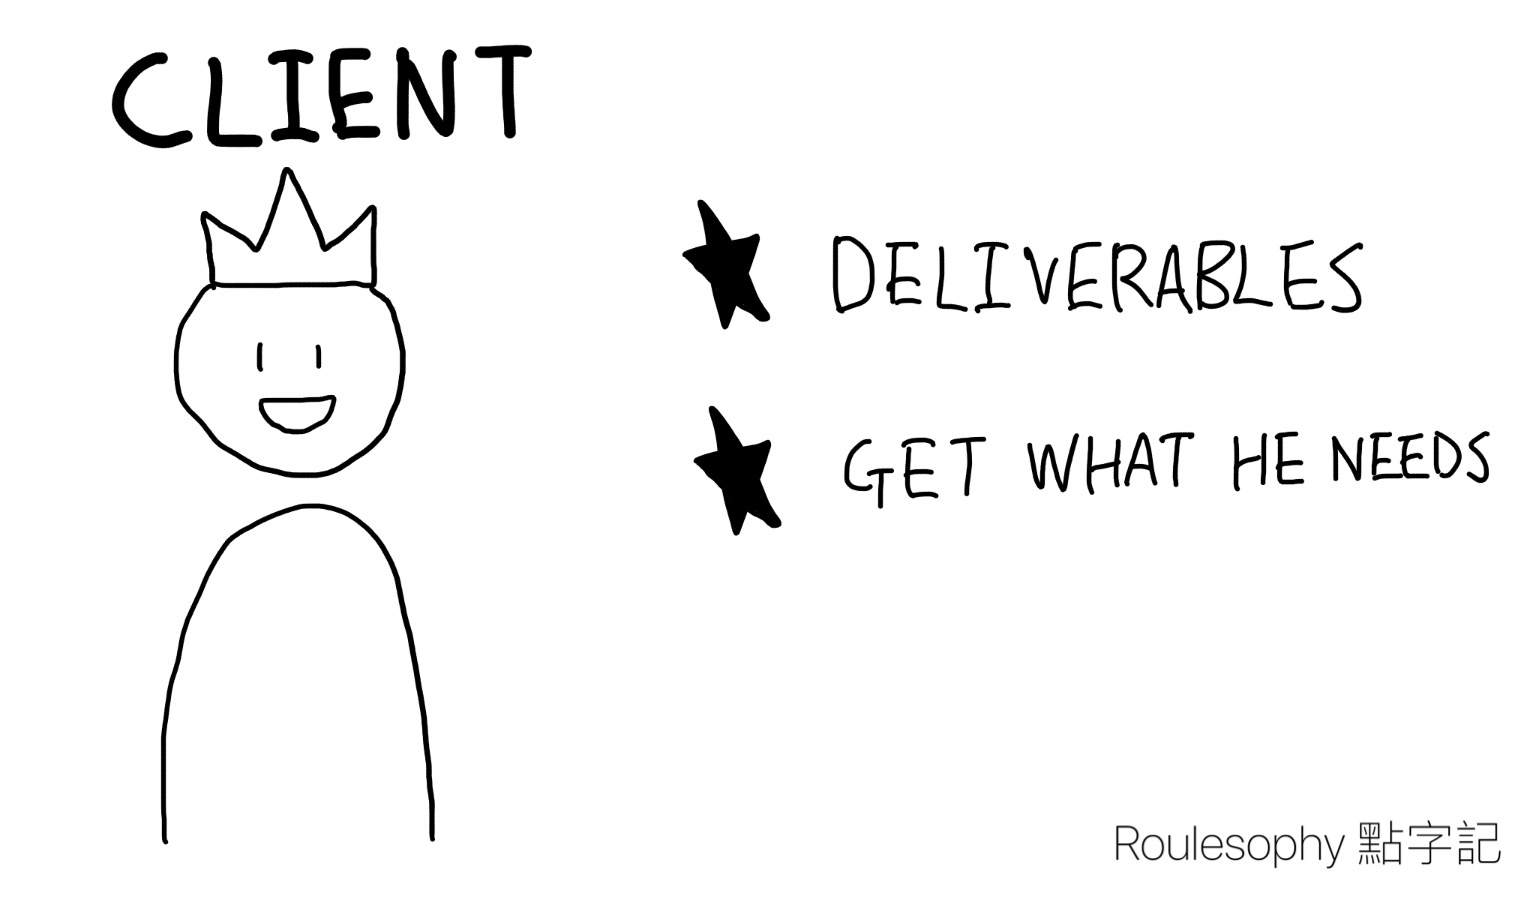 CLIENT
DELIVERABLES
GET WHAT HE NEEDS
Roulesophy 點字記